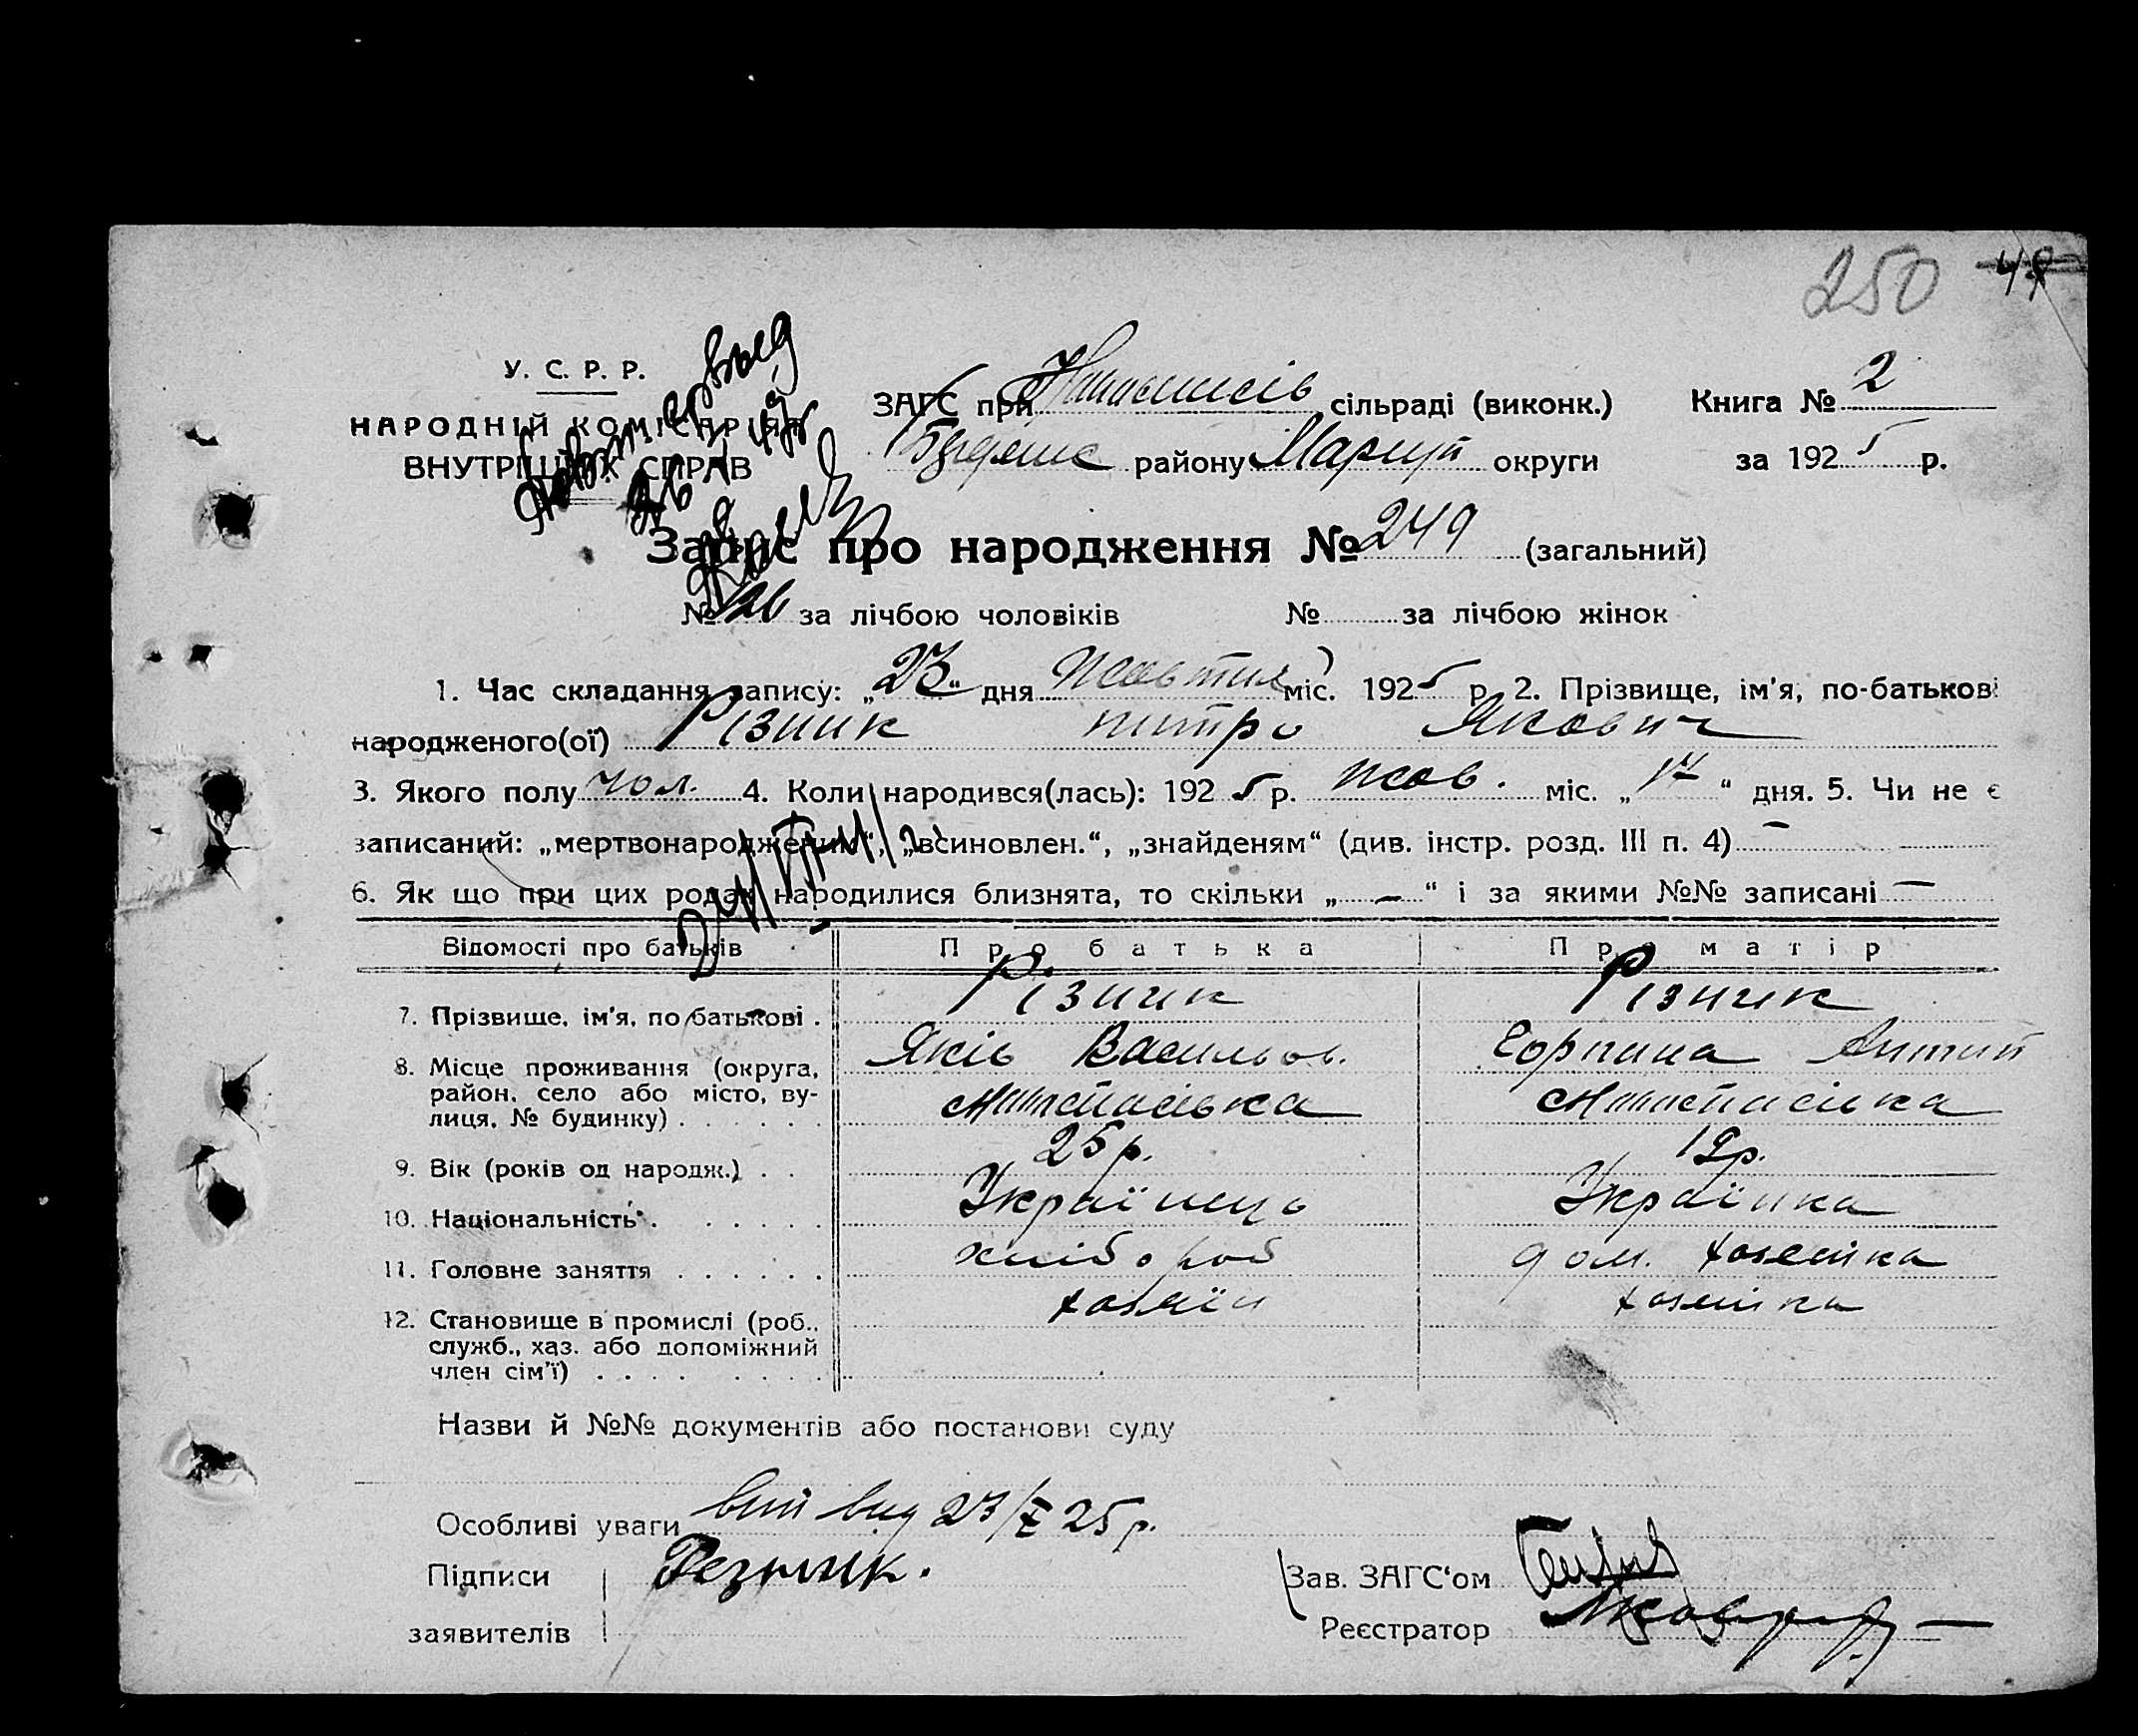 250
У. С. Р. Р.
НАРОДНІЙ КОМІСАРІЯТ
ВНУТРІШНІХ СПРАВ
ЗАГС при сільраді (виконк.)
району Маріуп округи
Книга № 2
за 1925 р.
Запис про народження № 249 (загальний)
№ 126 за лічбою чоловіків № за лічбою жінок
1. Час складання запису: „23“ дня Жовтня міс. 1925 р. 2. Прізвище, ім'я, по-батькові
народженого(ої) Різник питро Якович
3. Якого полу чол. 4. Коли народився(лась): 1925 р. жов. міс. „17“ дня. 5. Чи не є
записаний: „мертвонародженим“, „всиновлен.“, „знайденям“ (див. інстр. розд. III п. 4) —
6. Як що при цих родах народилися близнята, то скільки „—“ і за якими №№ записані —
Відомості про батьків Про батька Про матір
7. Прізвище, ім'я, по батькові . Різник Різник
Яків Васильов. Горпина
8. Місце проживання (округа, район, село або місто, вулиця, № будинку)
9. Вік (років од народж.) . . 25 р. 19 р.
10. Національність . Українець Українка
11. Головне заняття хлібороб дом. хозяйка
12. Становище в промислі (роб., служб., хаз. або допоміжний член сім'ї) хозяїн хозяйка
Назви й №№ документів або постанови суду
Особливі уваги вид 23/X 25 р.
Підписи Резник.
заявителів
Зав. ЗАГС‘ом
Реєстратор